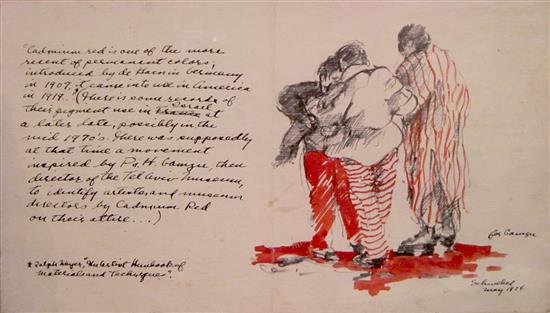 "Cadmium red is one of the more
recent of permanent colors,
introduced by de Haen in Germany
in 1907. It came into use in America
in 1919." (There is some records of
their pigment use in Israel at
a later date, possibly in the
mid 1970's. There was supposedly
at that time a movement
inspired by Dr. H. Gamzu, then
director of the Tel Aviv Museum,
to identify artists and museum
directors by Cadmium Red
on their attire...)
* Ralph Mayer, "The Artist Handbook of
Materials and Techniques".
for Gamzu
Schwebel
May 1974